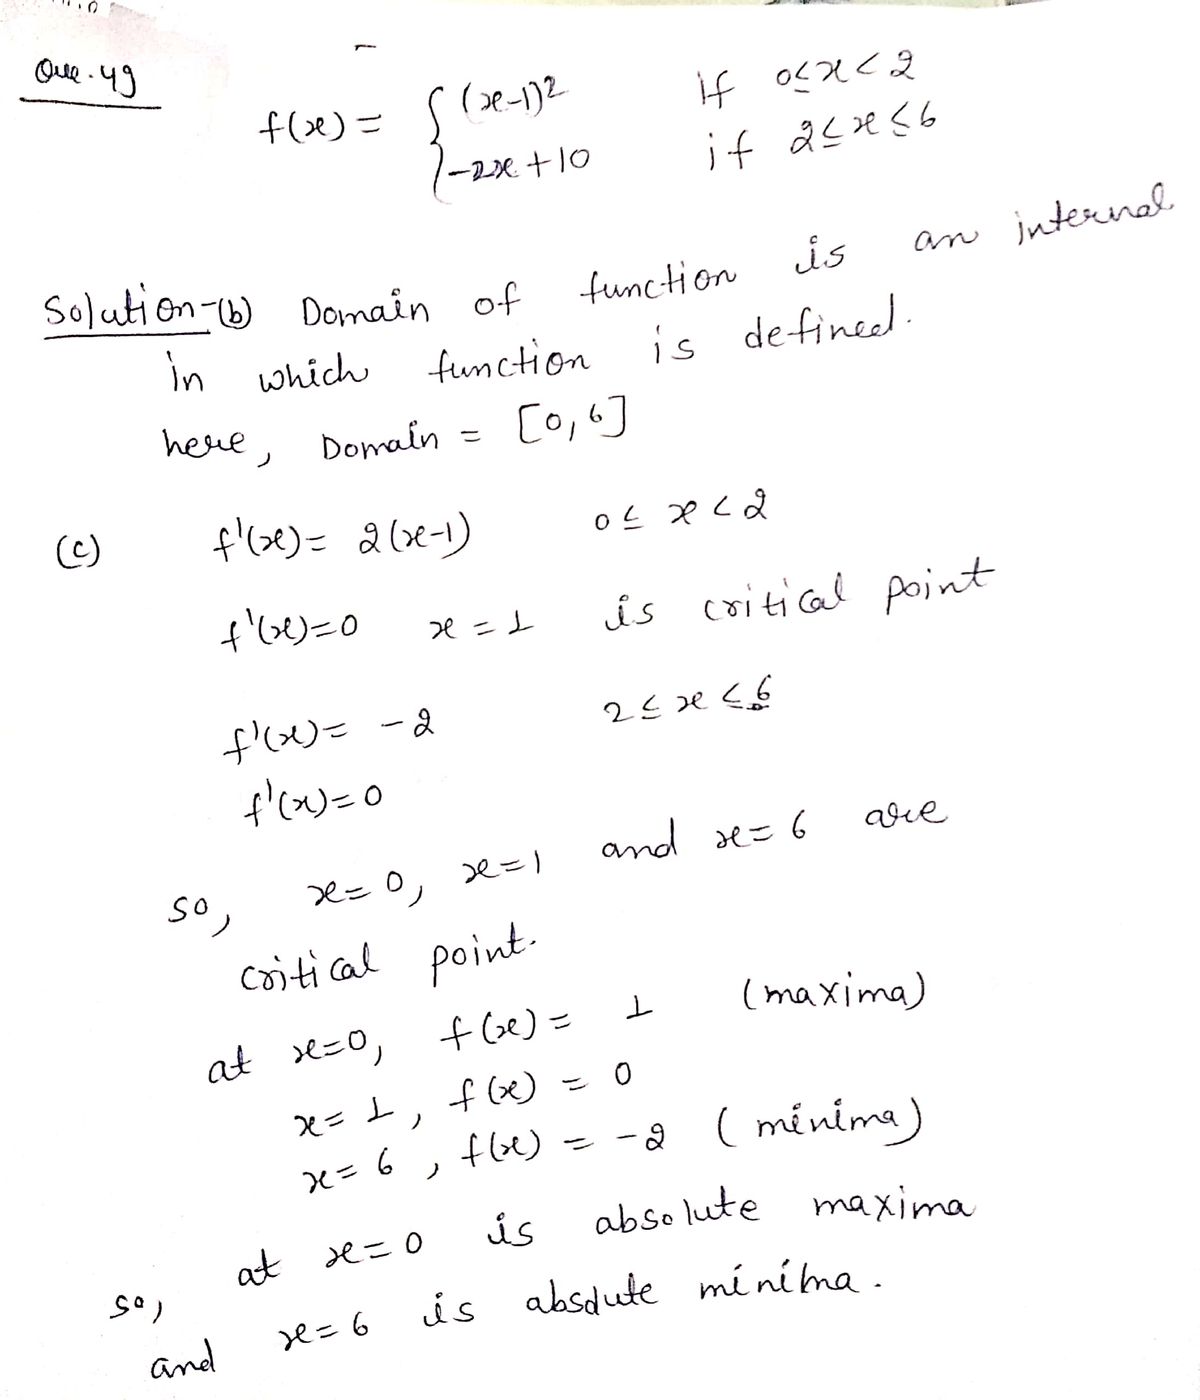 Que. 49
f(x) = { (x-1)2 If 0≤x<2
-2x+10 if 2≤x≤6
Solution-(b) Domain of function is an internal
in which function is defined.
here, Domain = [0,6]
(c) f'(x) = 2(x-1) 0≤ x<2
f'(x)=0 x=1 is critical point
f'(x) = -2 2≤x≤6
f'(x)=0
so, x=0, x=1 and x=6 are
critical point.
at x=0, f(x) = 1 (maxima)
x=1, f(x) = 0
x=6, f(x) = -2 (minima)
so, at x=0 is absolute maxima
and x=6 is absolute minima.